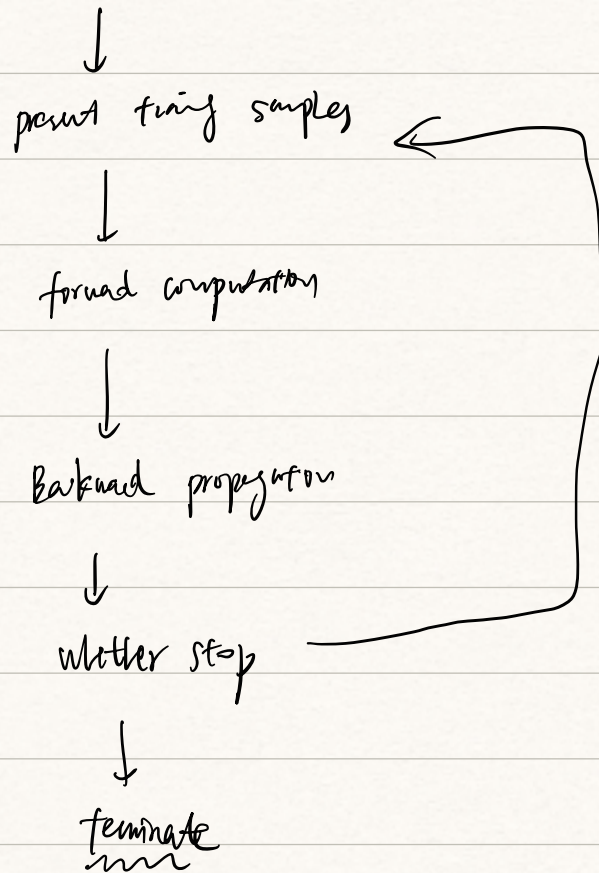 present traing samples
forward computation
Backward propagation
whether stop
terminate